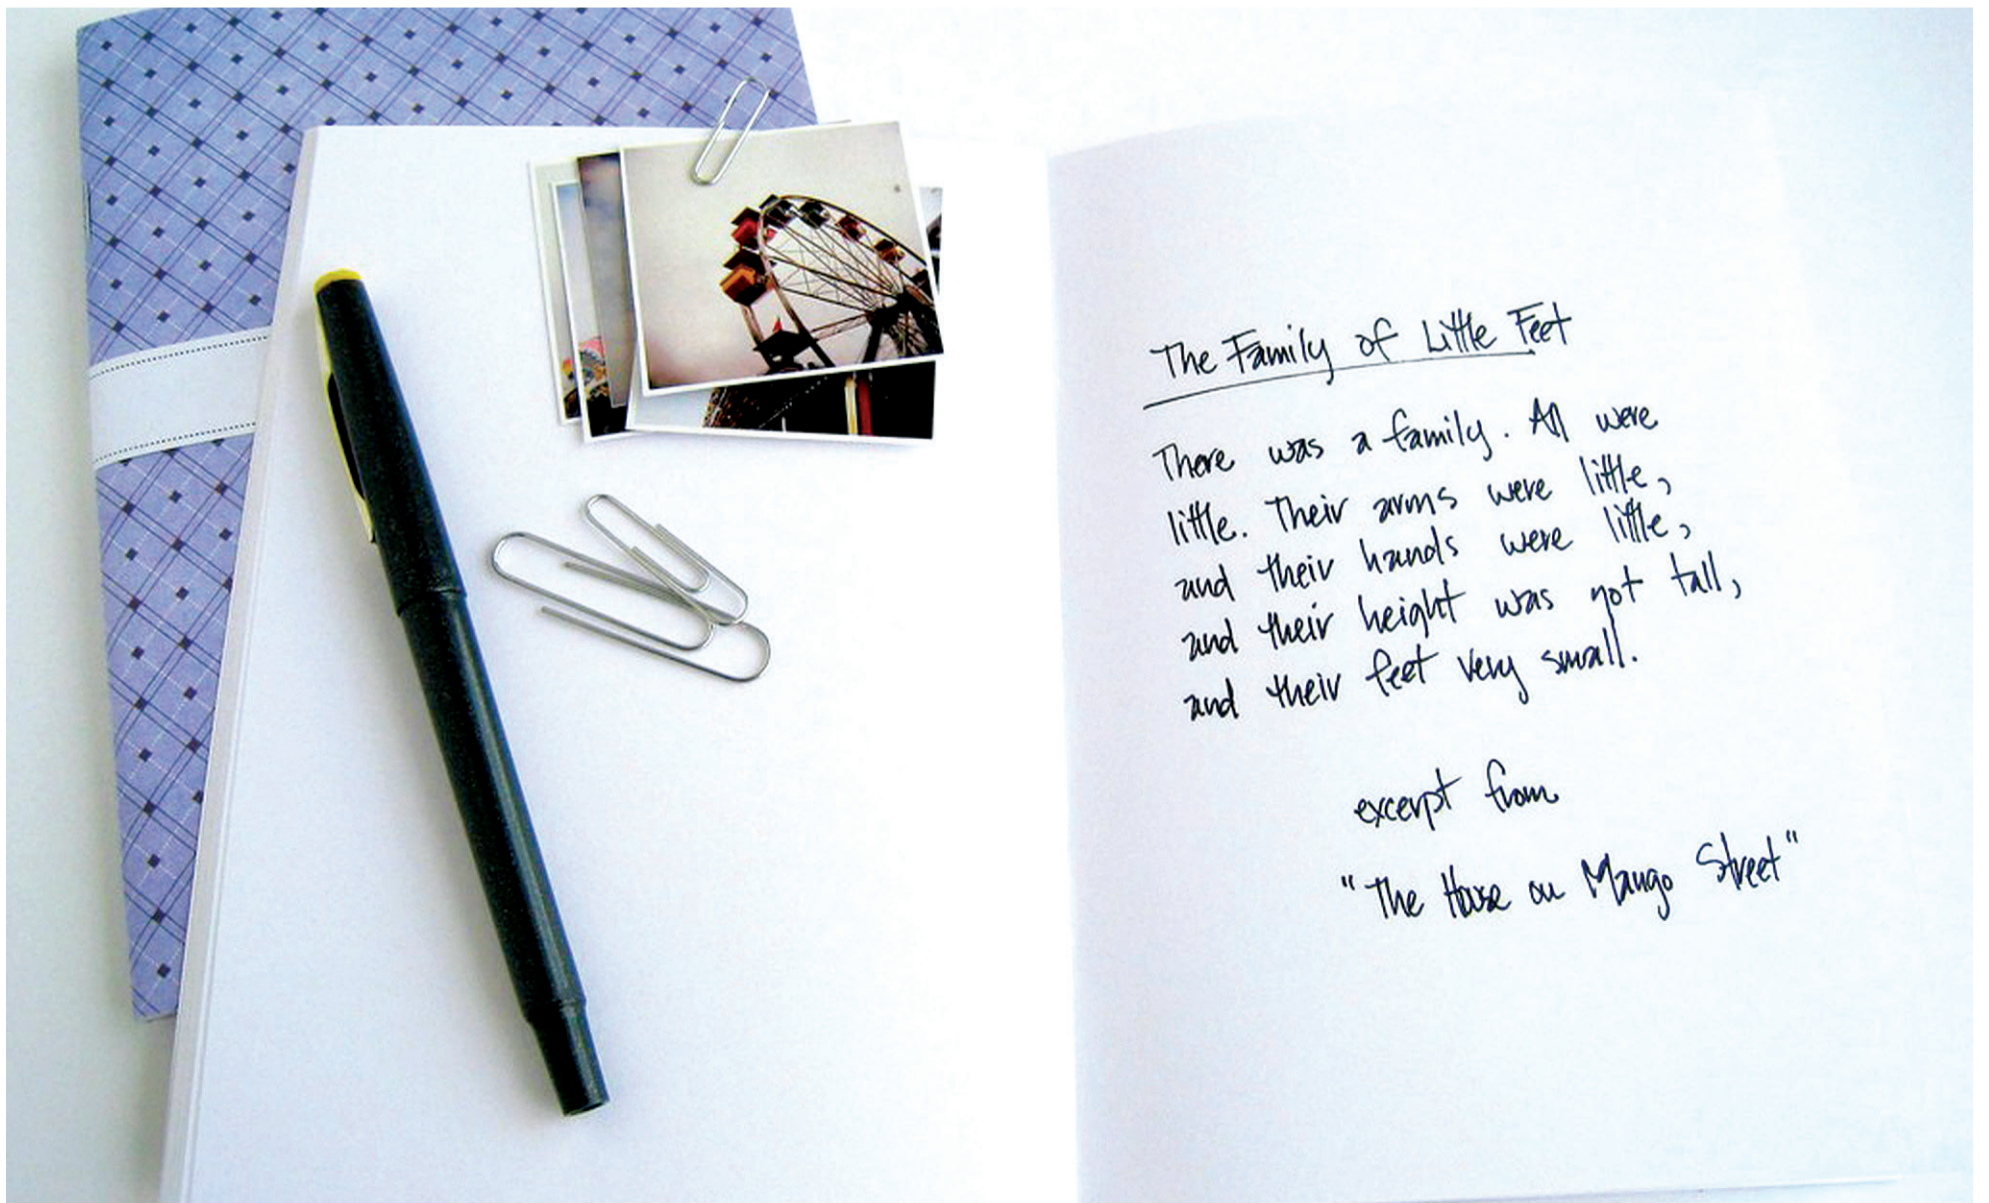 The Family of Little Feet
There was a family. All were
little. Their arms were little,
and their hands were little,
and their height was not tall,
and their feet very small.
excerpt from
"The House on Mango Street"